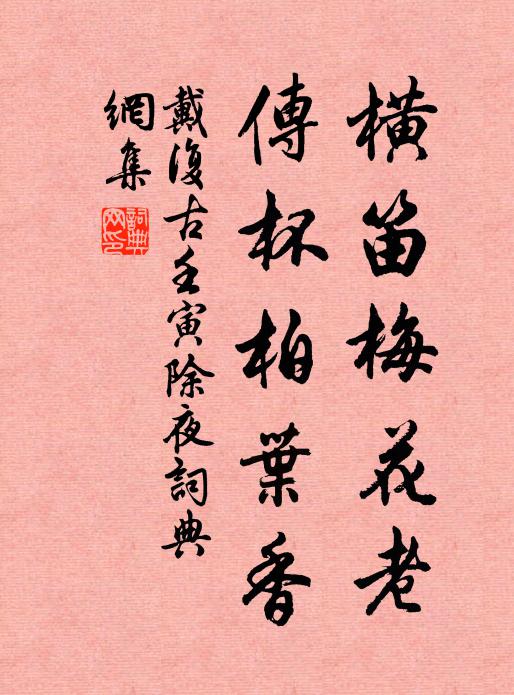 橫笛梅花老
傳杯柏葉香
戴復古壬寅除夜詞典
網集
詞典
網印